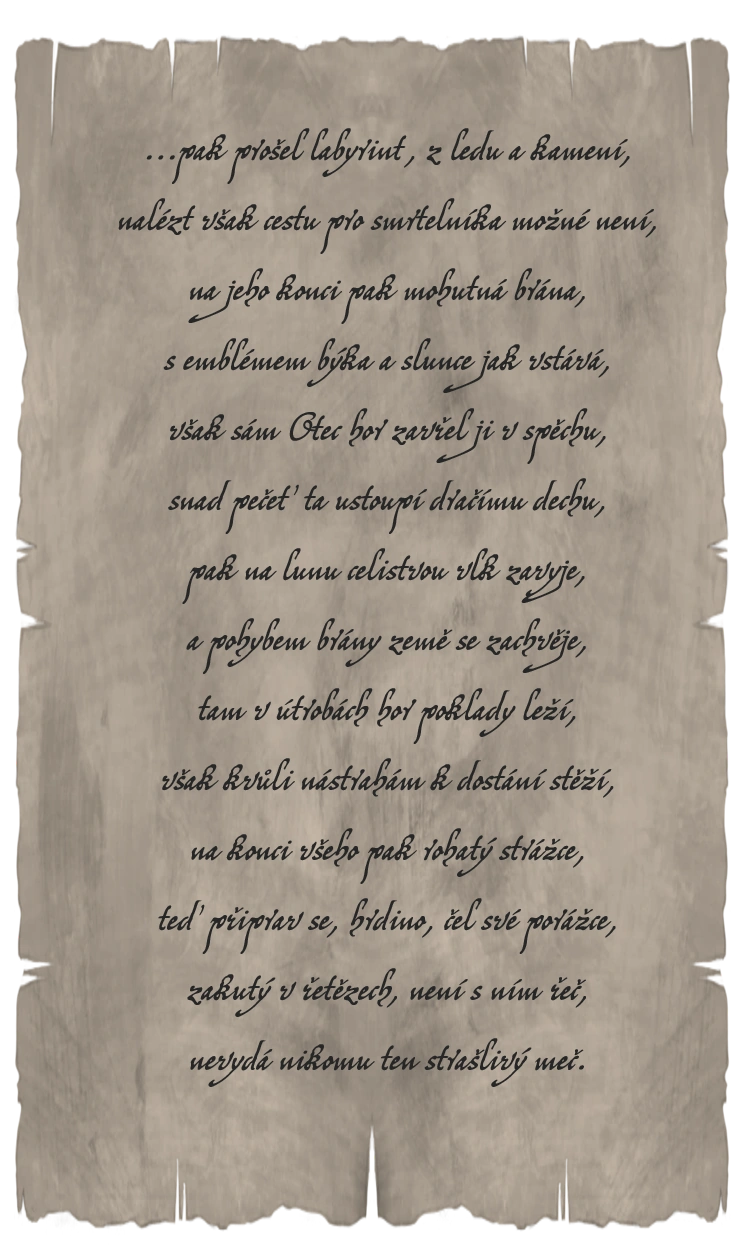 ...pak prošel labyrint, z ledu a kamení,
nalézt však cestu pro smrtelníka možné není,
na jeho konci pak mohutná brána,
s emblémem býka a slunce jak vstává,
však sám Otec hor zavřel ji v spěchu,
snad pečeť ta ustoupí dračímu dechu,
pak na lunu celistvou vlk zavyje,
a pohybem brány země se zachvěje,
tam v útrobách hor poklady leží,
však kvůli nástrahám k dostání stěží,
na konci všeho pak rohatý strážce,
teď připrav se, hrdino, čel své porážce,
zakutý v řetězech, není s ním řeč,
nevydá nikomu ten strašlivý meč.